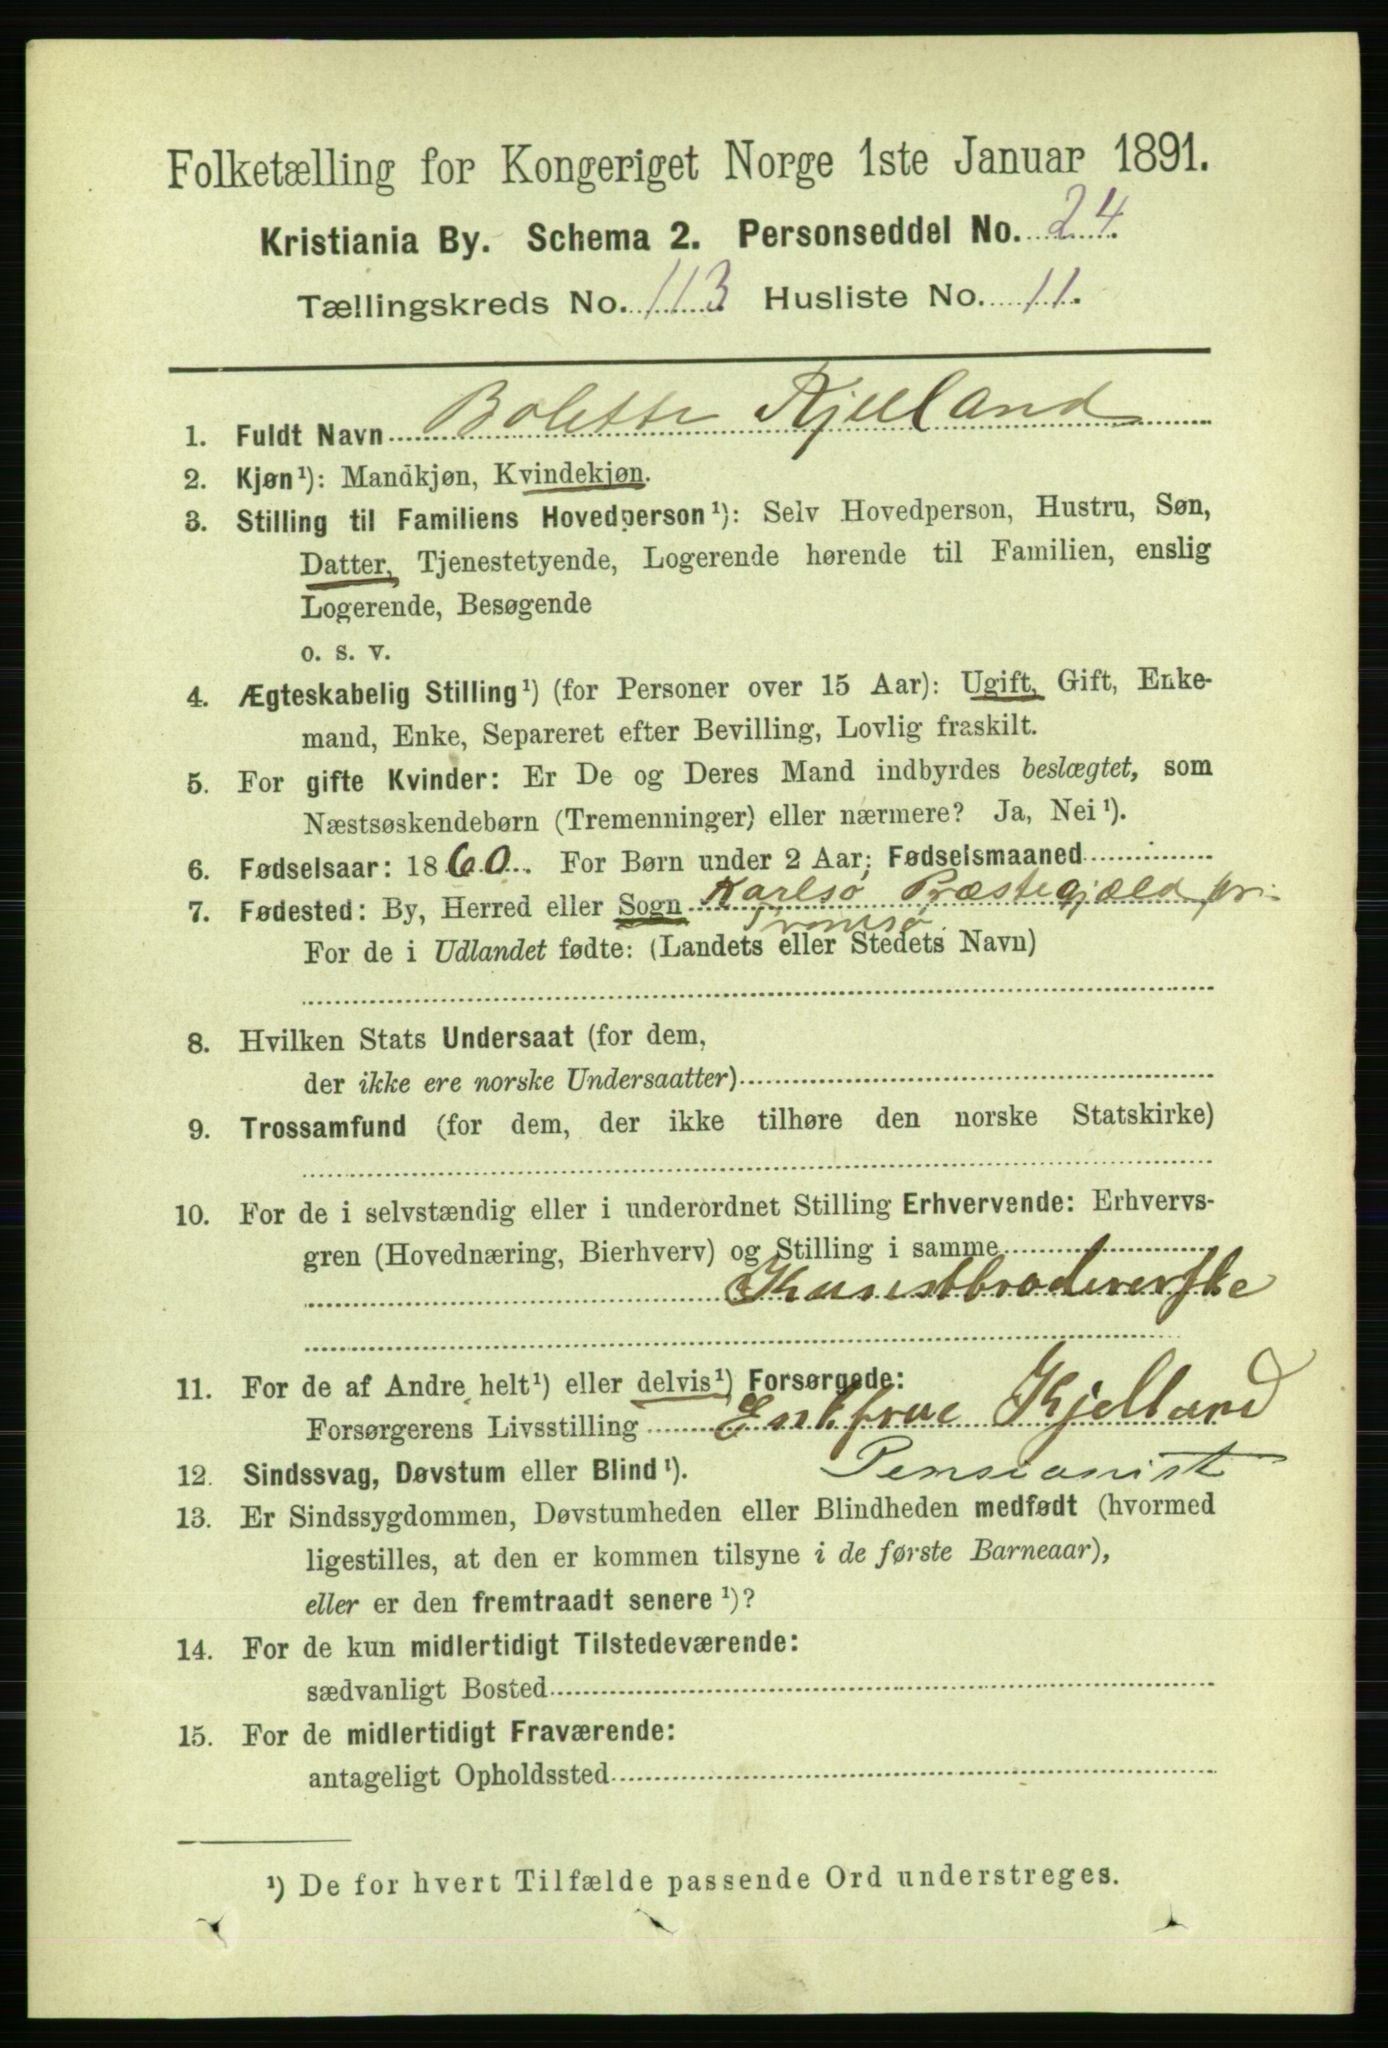 Folketælling for Kongeriget Norge 1ste Januar 1891.
Kristiania By. Schema 2. Personseddel No. 24.
Tællingskreds No. 113. Husliste No. 11.
1. Fuldt Navn Bolette Kjelland
2. Kjøn¹): Mandkjøn, Kvindekjøn.
3. Stilling til Familiens Hovedperson¹): Selv Hovedperson, Hustru, Søn,
Datter, Tjenestetyende, Logerende hørende til Familien, enslig
Logerende, Besøgende
o. s. v.
4. Ægteskabelig Stilling¹) (for Personer over 15 Aar): Ugift, Gift, Enke-
mand, Enke, Separeret efter Bevilling, Lovlig fraskilt.
5. For gifte Kvinder: Er De og Deres Mand indbyrdes beslægtet, som
Næstsøskendebørn (Tremenninger) eller nærmere? Ja, Nei¹).
6. Fødselsaar: 1860. For Børn under 2 Aar; Fødselsmaaned
7. Fødested: By, Herred eller Sogn Karlsø Præstegjæld pr.
Tromsø.
For de i Udlandet fødte: (Landets eller Stedets Navn)
8. Hvilken Stats Undersaat (for dem,
der ikke ere norske Undersaatter)
9. Trossamfund (for dem, der ikke tilhøre den norske Statskirke)
10. For de i selvstændig eller i underordnet Stilling Erhvervende: Erhvervs-
gren (Hovednæring, Bierhverv) og Stilling i samme
Kunstbrodererske
11. For de af Andre helt¹) eller delvis¹) Forsørgede:
Forsørgerens Livsstilling Enkefrue Kjelland
Pensionist
12. Sindssvag, Døvstum eller Blind¹).
13. Er Sindssygdommen, Døvstumheden eller Blindheden medfødt (hvormed
ligestilles, at den er kommen tilsyne i de første Barneaar),
eller er den fremtraadt senere¹)?
14. For de kun midlertidigt Tilstedeværende:
sædvanligt Bosted
15. For de midlertidigt Fraværende:
antageligt Opholdssted
¹) De for hvert Tilfælde passende Ord understreges.